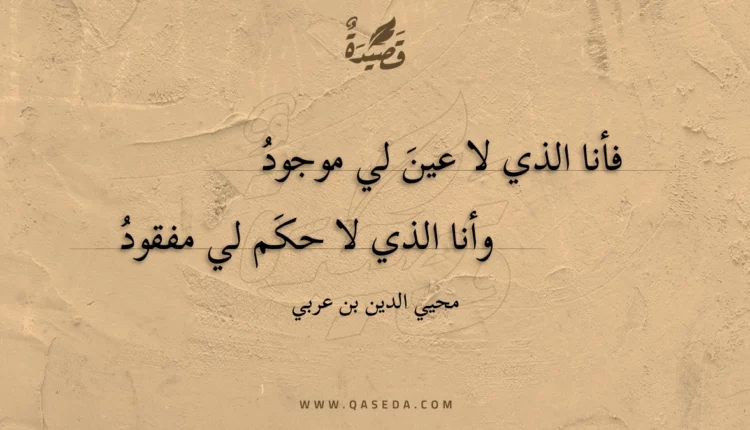 قَصِيْدَةٌ
فأنا الذي لا عينَ لي موجودُ
وأنا الذي لا حكَم لي مفقودُ
محيي الدين بن عربي
WWW.QASEDA.COM